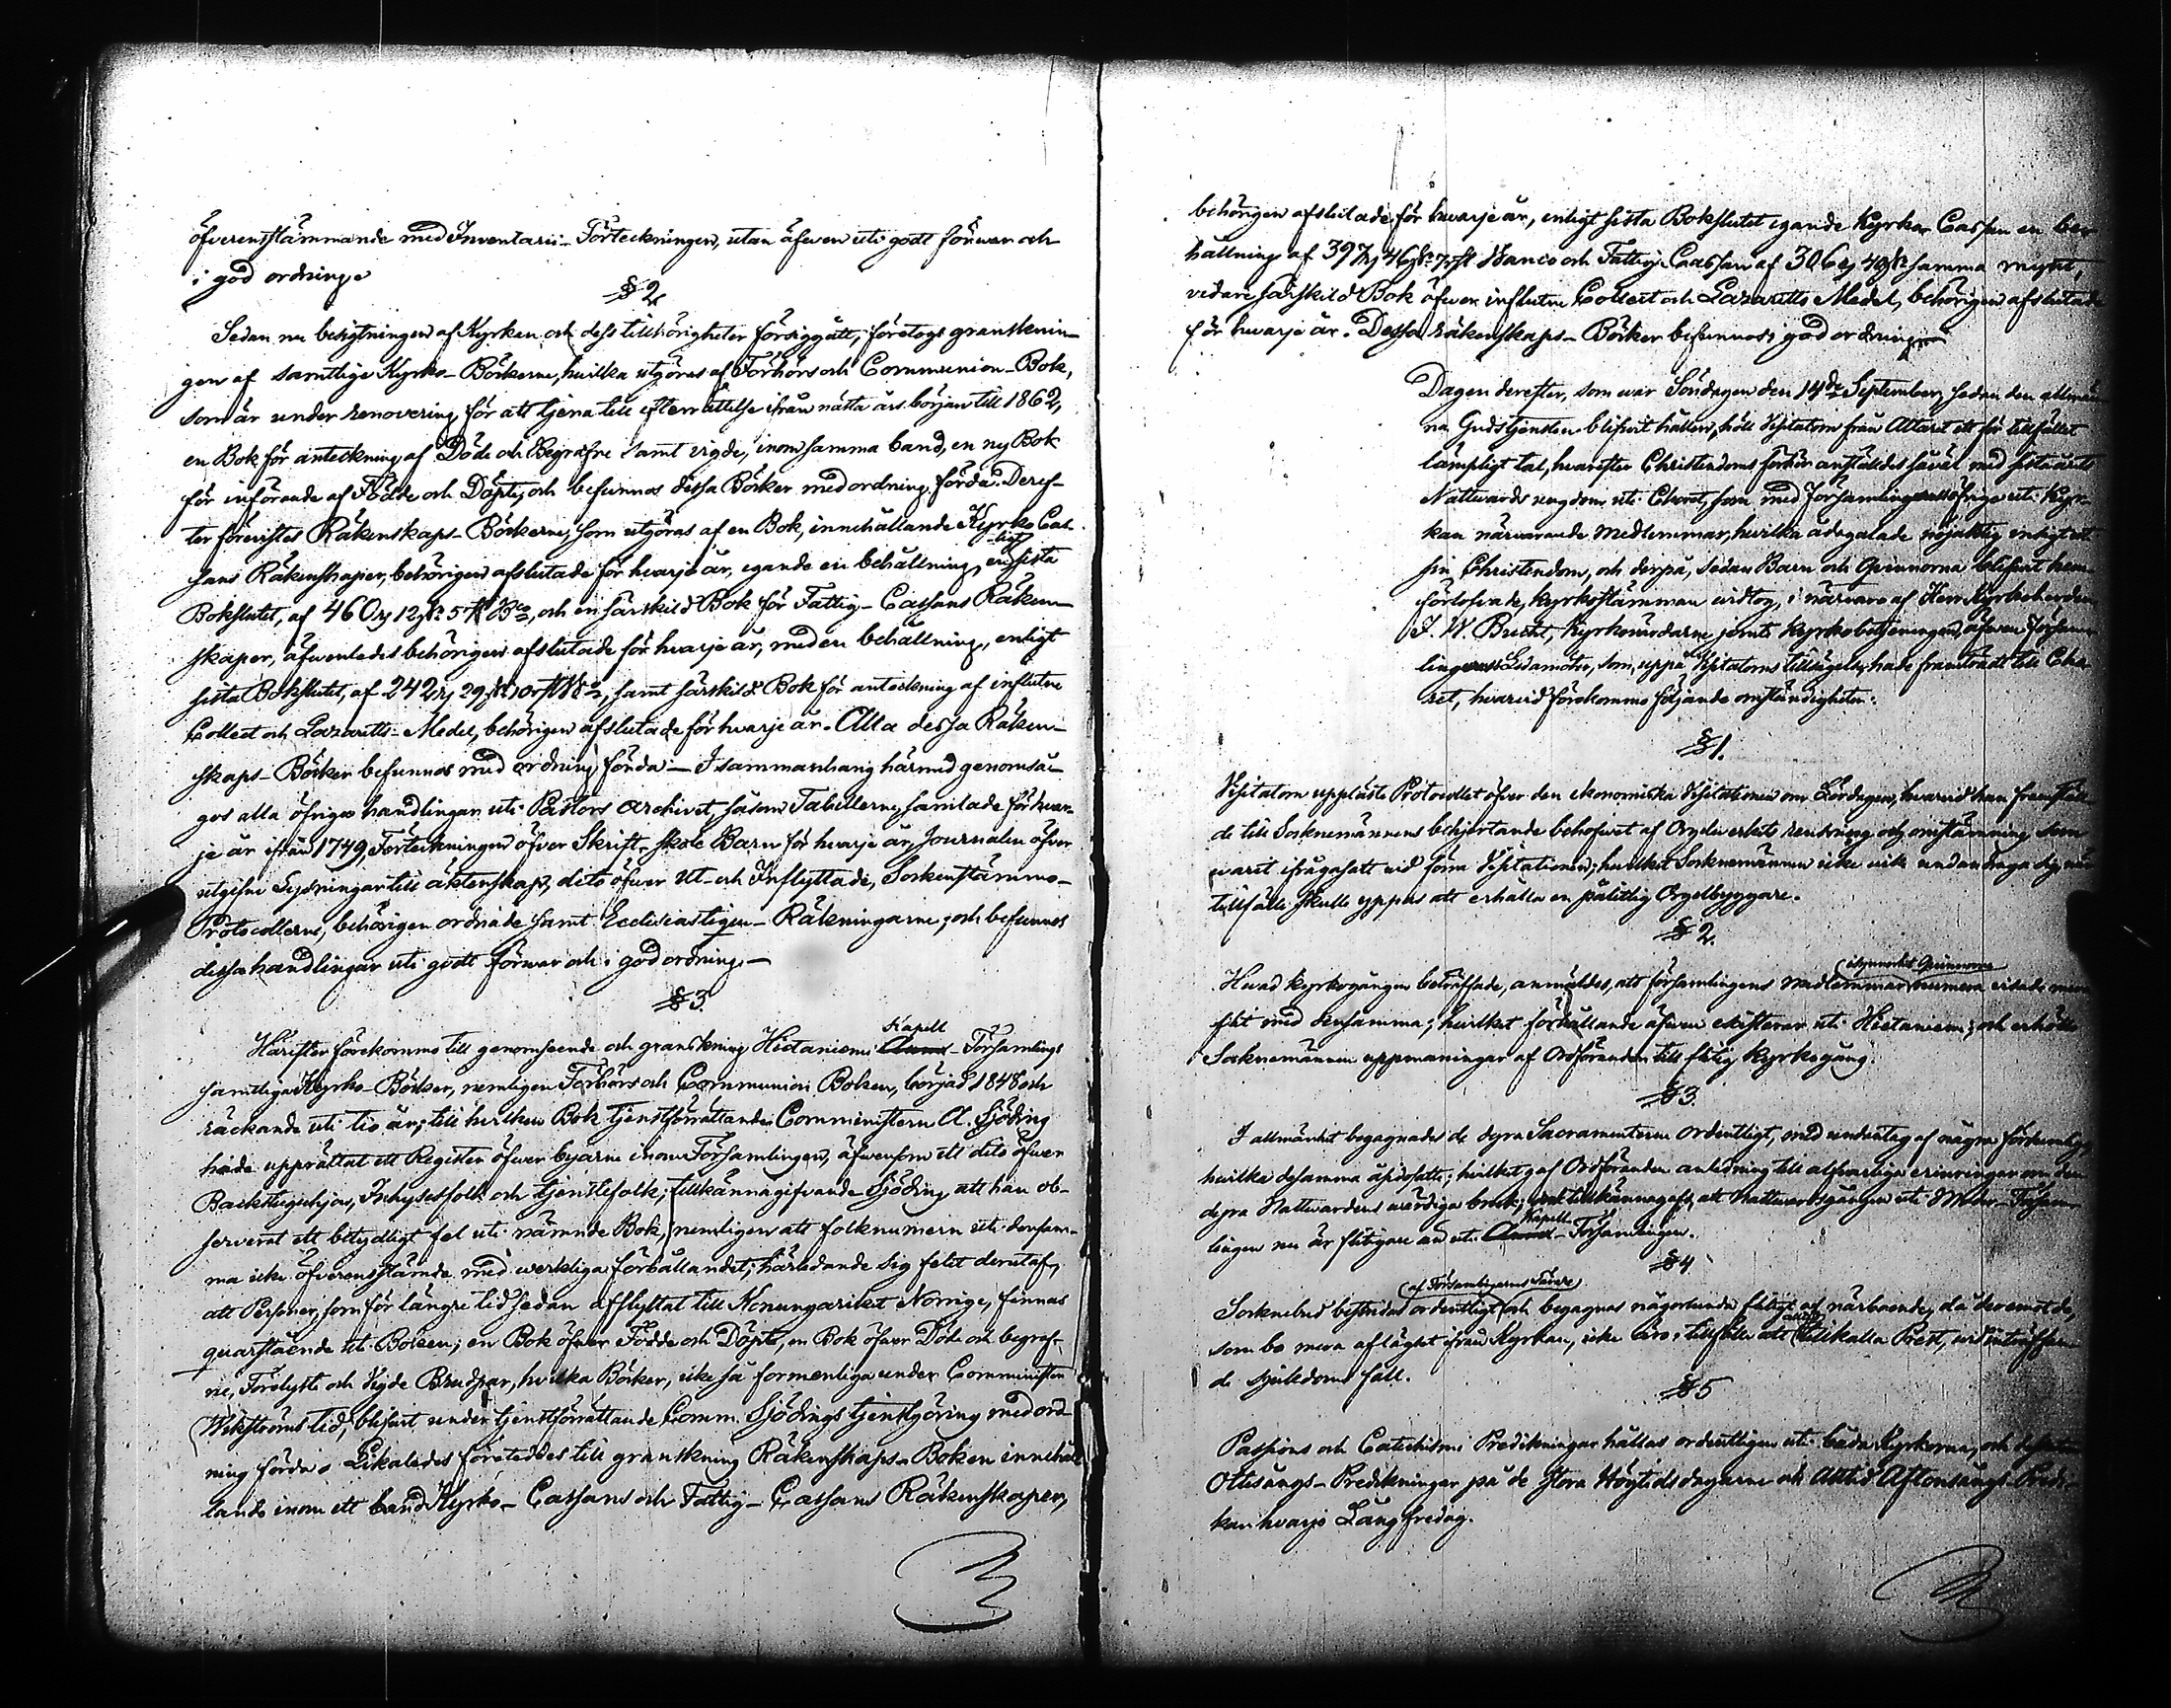 öfverensstämmande med Inventarii-Förteckningen, utan äfwen uti godt förwar och
i god ordning.
§ 2.
Sedan nu besigtningen af Kyrkan och dess tillhörigheter försiggått, företogs gransknin-
gen af samtlige Kyrko-Böckerne, hwilka utgöras af Förhörs och Communion-Bok,
som är under renovering för att tjena till efterrättelse ifrån nästa års början till 1862,
en Bok för anteckning af Döde och Begrafne samt vigde, inom samma band, en ny Bok
för införande af Födde och Döpte, och befunnos dessa Böcker med ordning förda. Deref-
ter förevistes Räkenskaps-Böckerne, som utgöras af en Bok, innehållande Kyrko Cas-
sans Räkenskaper, behörigen afslutade för hvarje år, egande en behållning, enligt sista
Bokslutet, af 460 12 5 och en särskild Bok för Fattig-Cassans Räken-
skaper, äfwenledes behörigen afslutade för hvarje år, med en behållning, enligt
sista Bokslutet, af 242 29 10 samt särskild Bok för anteckning af influtne
Collect och Lazaretts-Medel, behörigen afslutade för hvarje år. Alla dessa Räken-
skaps-Böcker befunnos med ordning förda. — I sammanhang härmed genomså-
gos alla öfriga handlingar uti Pastors Archivet, såsom Tabellerne, samlade för hvar-
je år ifrån 1749, Förteckningen öfver Skrift-skole Barn för hvarje år, Journalen öfver
utgifne Lysningar till äktenskap, dito öfwer ut- och Inflyttade, Sockenstämmo-
Protocollerne, behörigen ordnade samt Ecclesiastique-Räkningarne; och befunnos
dessa handlingar uti godt förwar och i god ordning. —
§ 3.
Kapell
Härefter förekommo till genomseende och granskning Hietaniemi Annex-Församlings
samtliga Kyrko-Böcker, nemligen Förhörs och Communion Boken, börjad 1848 och
räckande uti tio år; till hwilken Bok tjenstförrättande Comministern A. Sjöding
hade upprättat ett Register öfwer byarne inom Församlingen, äfwensom ett dito öfwer
Backstuguhjon, Inhysesfolk och tjenstefolk; tillkännagifvande Sjöding att han ob-
serverat ett betydligt fel uti nämnde Bok, nemligen att folknumern uti densam-
ma icke öfverensstämde med werkliga förhållandet; härledande sig felet derutaf,
att Personer, som för längre tid sedan afflyttat till Konungariket Norrige, finnas
quarstående uti Boken; en Bok öfwer Födde och Döpte, en Bok öfwer Döde och begraf-
ne, Förelyste och Vigde Brudpar, hvilka Böcker, icke så formenliga under Comministern
Wikströms tid, blifwit under tjenstförrättande Comm. Sjödings tjenstgöring med ord-
ning förda. Likaledes företeddes till granskning Räkenskaps-Boken innehål-
lande inom ett band Kyrko-Cassans och Fattig-Cassans Räkenskaper,
behörigen afslutade för hwarje år, enligt sista Bokslutet egande Kyrko Cassan en be-
hållning af 397 46 7 Banco och Fattig-Cassan af 306 40 samma mynt,
vidare särskild Bok öfwer influtne Collect och Lazaretts Medel, behörigen afslutade
för hwarje år. Dessa räkenskaps-Böcker befunnos i god ordning.
Dagen derefter, som war Söndagen den 14de September, sedan den allmän-
na Gudstjensten blifwit hållen, höll Visitator från Altaret ett för tillfället
lämpligt tal, hvarefter Christendoms förhör anställdes såväl med sista årets
Nattwards ungdom uti Choret, som med församlingens öfrige uti Kyr-
kan närwarande medlemmar, hwilka ådagalade nöjaktig insigt uti
sin Christendom, och derpå, sedan Barn och Qvinnorna blifwit hem-
förlofvade, kyrkostämman vidtog, i närvaro af Herr Kyrkoherden
J. W. Brecht, Kyrkowärdarne jemte Kyrkobetjeningen, äfwen Försam-
lingens Ledamöter, som, uppå Visitatoris tillsägelse, hade framträdt till Cho-
ret, hwarvid förekommo följande omständigheter:
§ 1.
Visitator uppläste Protocollet öfver den ekonomiska Visitationen om Lördagen, hwarvid han framställ-
de till Socknemännens behjertande behofvet af Orgelverkets renovering och omstämning som
warit ifrågasatt vid förra Visitationen; hwilket Socknemännen icke wille undandraga sig, når
tillfälle skulle yppas att erhålla en pålitlig Orgelbyggare.
§ 2.
isynnerhet Qvinnorne
Hwad kyrkogången beträffade, anmäldes, att församlingens medlemmar numera visade mera
flit med densamma; hwilket förhållande äfwen existerar uti Hietaniemi; och erhöllo
Socknemännen uppmaningar af Ordföranden till flitig kyrkogång.
§ 3.
I allmänhet begagnades de dyra Sacramenterne ordentligt, med undantag af några
hwilka desamma åsidosatte; hwilket gaf Ordföranden anledning till alfwarliga erinringar om den
dyra Nattwardens wärdiga bruk; tillkännagafs, att nattwardsgången uti Moder-Försam-
Kapell
lingen nu är flitigare än uti Annex-Församlingen.
§ 4
af Församlingarnes Lärare
Sockenbud besöktes ordentligt och begagnas någorlunda flitigt af närboende, då deremot de,
alltid
som bo mera aflägset ifrån Kyrkan, icke äro i tillfälle att tillkalla Prest, vid inträffan-
de sjukdoms fall.
§ 5
Passions och Catechismi Predikningar hållas ordentligen uti båda Kyrkorna, och
Ottesångs-Predikningar på de stora Högtidsdagarne och Alltid Aftonsångs Predi-
kan hvarje Långfredag.